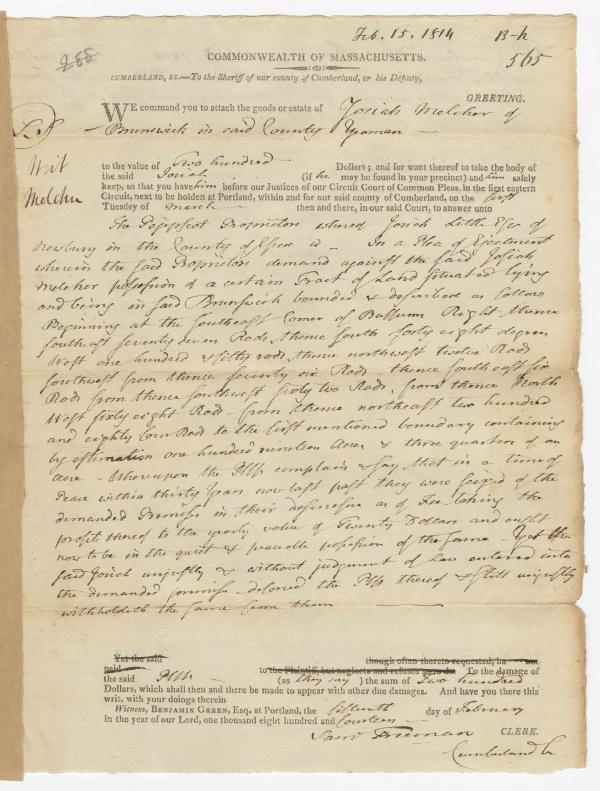 Feb. 15. 1814
B-h
288
565
COMMONWEALTH OF MASSACHUSETTS.
CUMBERLAND, SS.—To the Sheriff of our county of Cumberland, or his Deputy,
GREETING.
WE command you to attach the goods or estate of Josiah Melcher of
Brunswick in said County Yeoman —
Writ
Melcher
to the value of Two hundred Dollars; and for want thereof to take the body of
the said Josiah (if he may be found in your precinct) and him safely
keep, so that you have him before our Justices of our Circuit Court of Common Pleas, in the first eastern
Circuit, next to be holden at Portland, within and for our said county of Cumberland, on the first
Tuesday of March — then and there, in our said Court, to answer unto
The Pejepscot Proprietors whereof Josiah Little Esqr of
Newbury in the County of Essex is — In a Plea of Ejectment
wherein the said Proprietors demand against the said Josiah
Melcher possession of a certain Tract of Land situated lying
and being in said Brunswick bounded & described as follows
Beginning at the Southeast Corner of Right thence
southeast seventy seven Rods, thence south forty eight degrees
West one hundred & fifty rods, thence northwest twelve Rods
southwest from thence seventy six Rods — thence southeast six
Rods from thence southwest sixty two Rods, from thence North
West sixty eight Rods — from thence northeast two hundred
and eighty four Rod to the first mentioned boundary containing
by estimation one hundred nineteen Acres & three quarters of an
acre — Whereupon the Plffs complain & say, that in a time of
Peace within thirty Years now last past they were seized of the
demanded Premises in their demesne as of Fee taking the
profits thereof to the yearly value of Twenty Dollars and ought
now to be in the quiet & peaceable possession of the same — Yet the
said Josiah unjustly & without judgment of Law entered into
the demanded premises — the Plffs thereof & still unjustly
withholdeth the same from them
Yet the said though often thereto requested, ha not
paid to the Plaintiff, but neglects and refuses so to do. To the damage of
the said Plffs — (as they say) the sum of Two hundred
Dollars, which shall then and there be made to appear with other due damages. And have you there this
writ, with your doings therein
Witness, BENJAMIN GREEN, Esq. at Portland, the fifteenth day of February
in the year of our Lord, one thousand eight hundred and fourteen —
Saml Freeman CLERK.
Cumberland